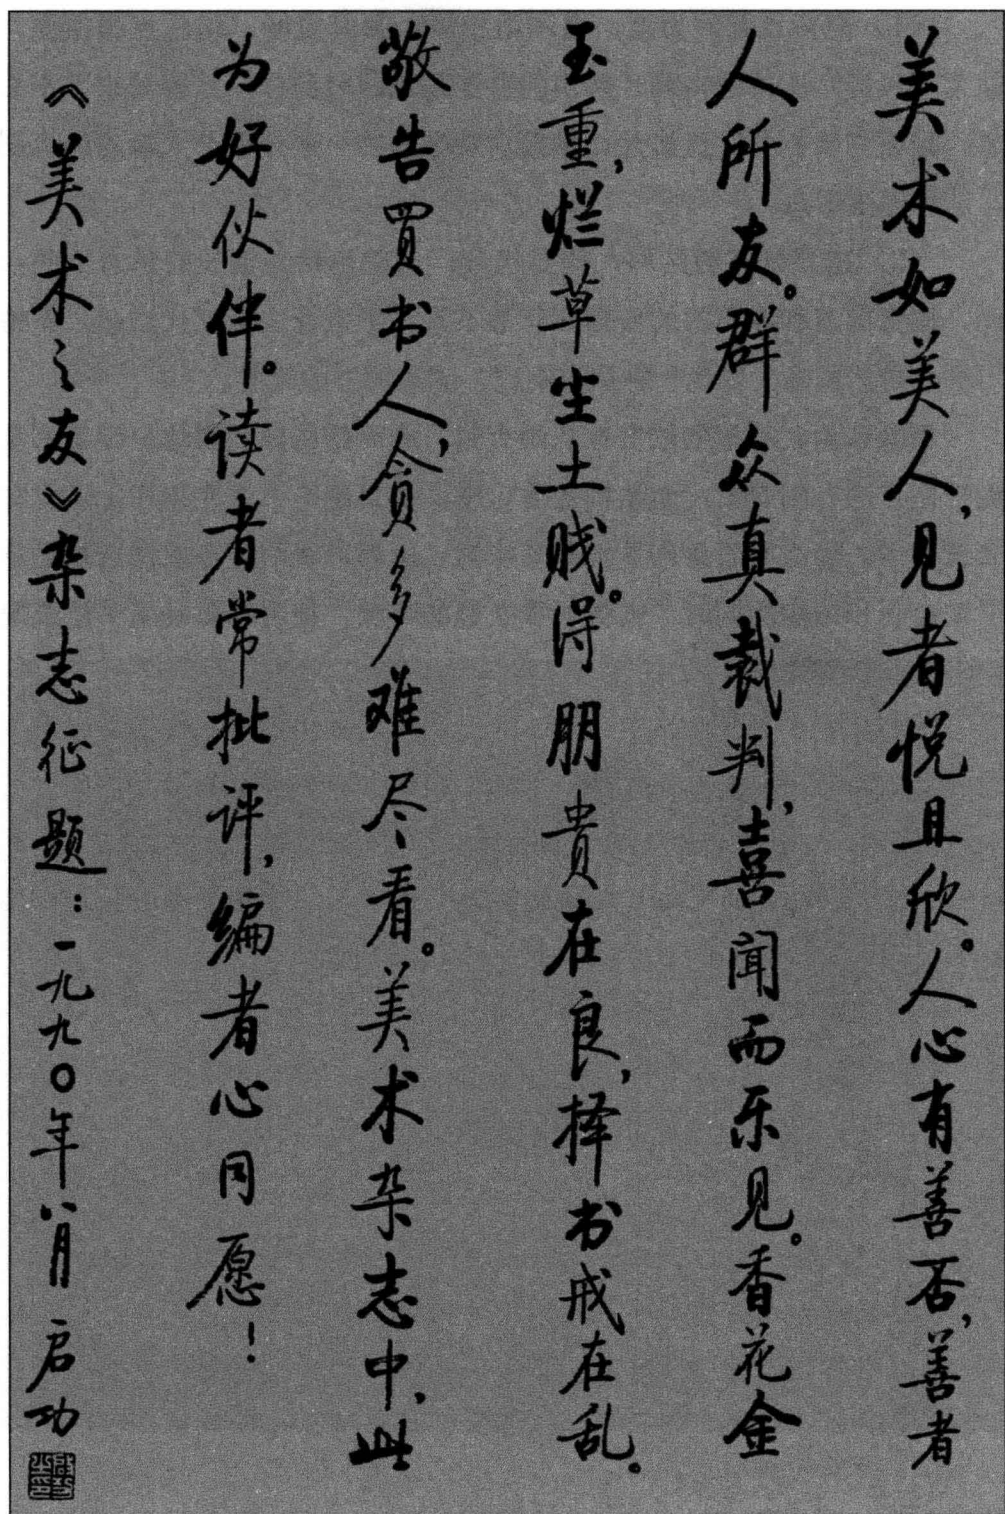 美术如美人，见者悦且欣。人心有善否，善者
人所友。群众真裁判，喜闻而乐见。香花金
玉重，烂草尘土贱。得朋贵在良，择书戒在乱。
敬告買书人，贪多难尽看。美术杂志中，此
为好伙伴。读者常批评，编者心同愿！
《美术之友》杂志征题：一九九〇年八月 启功